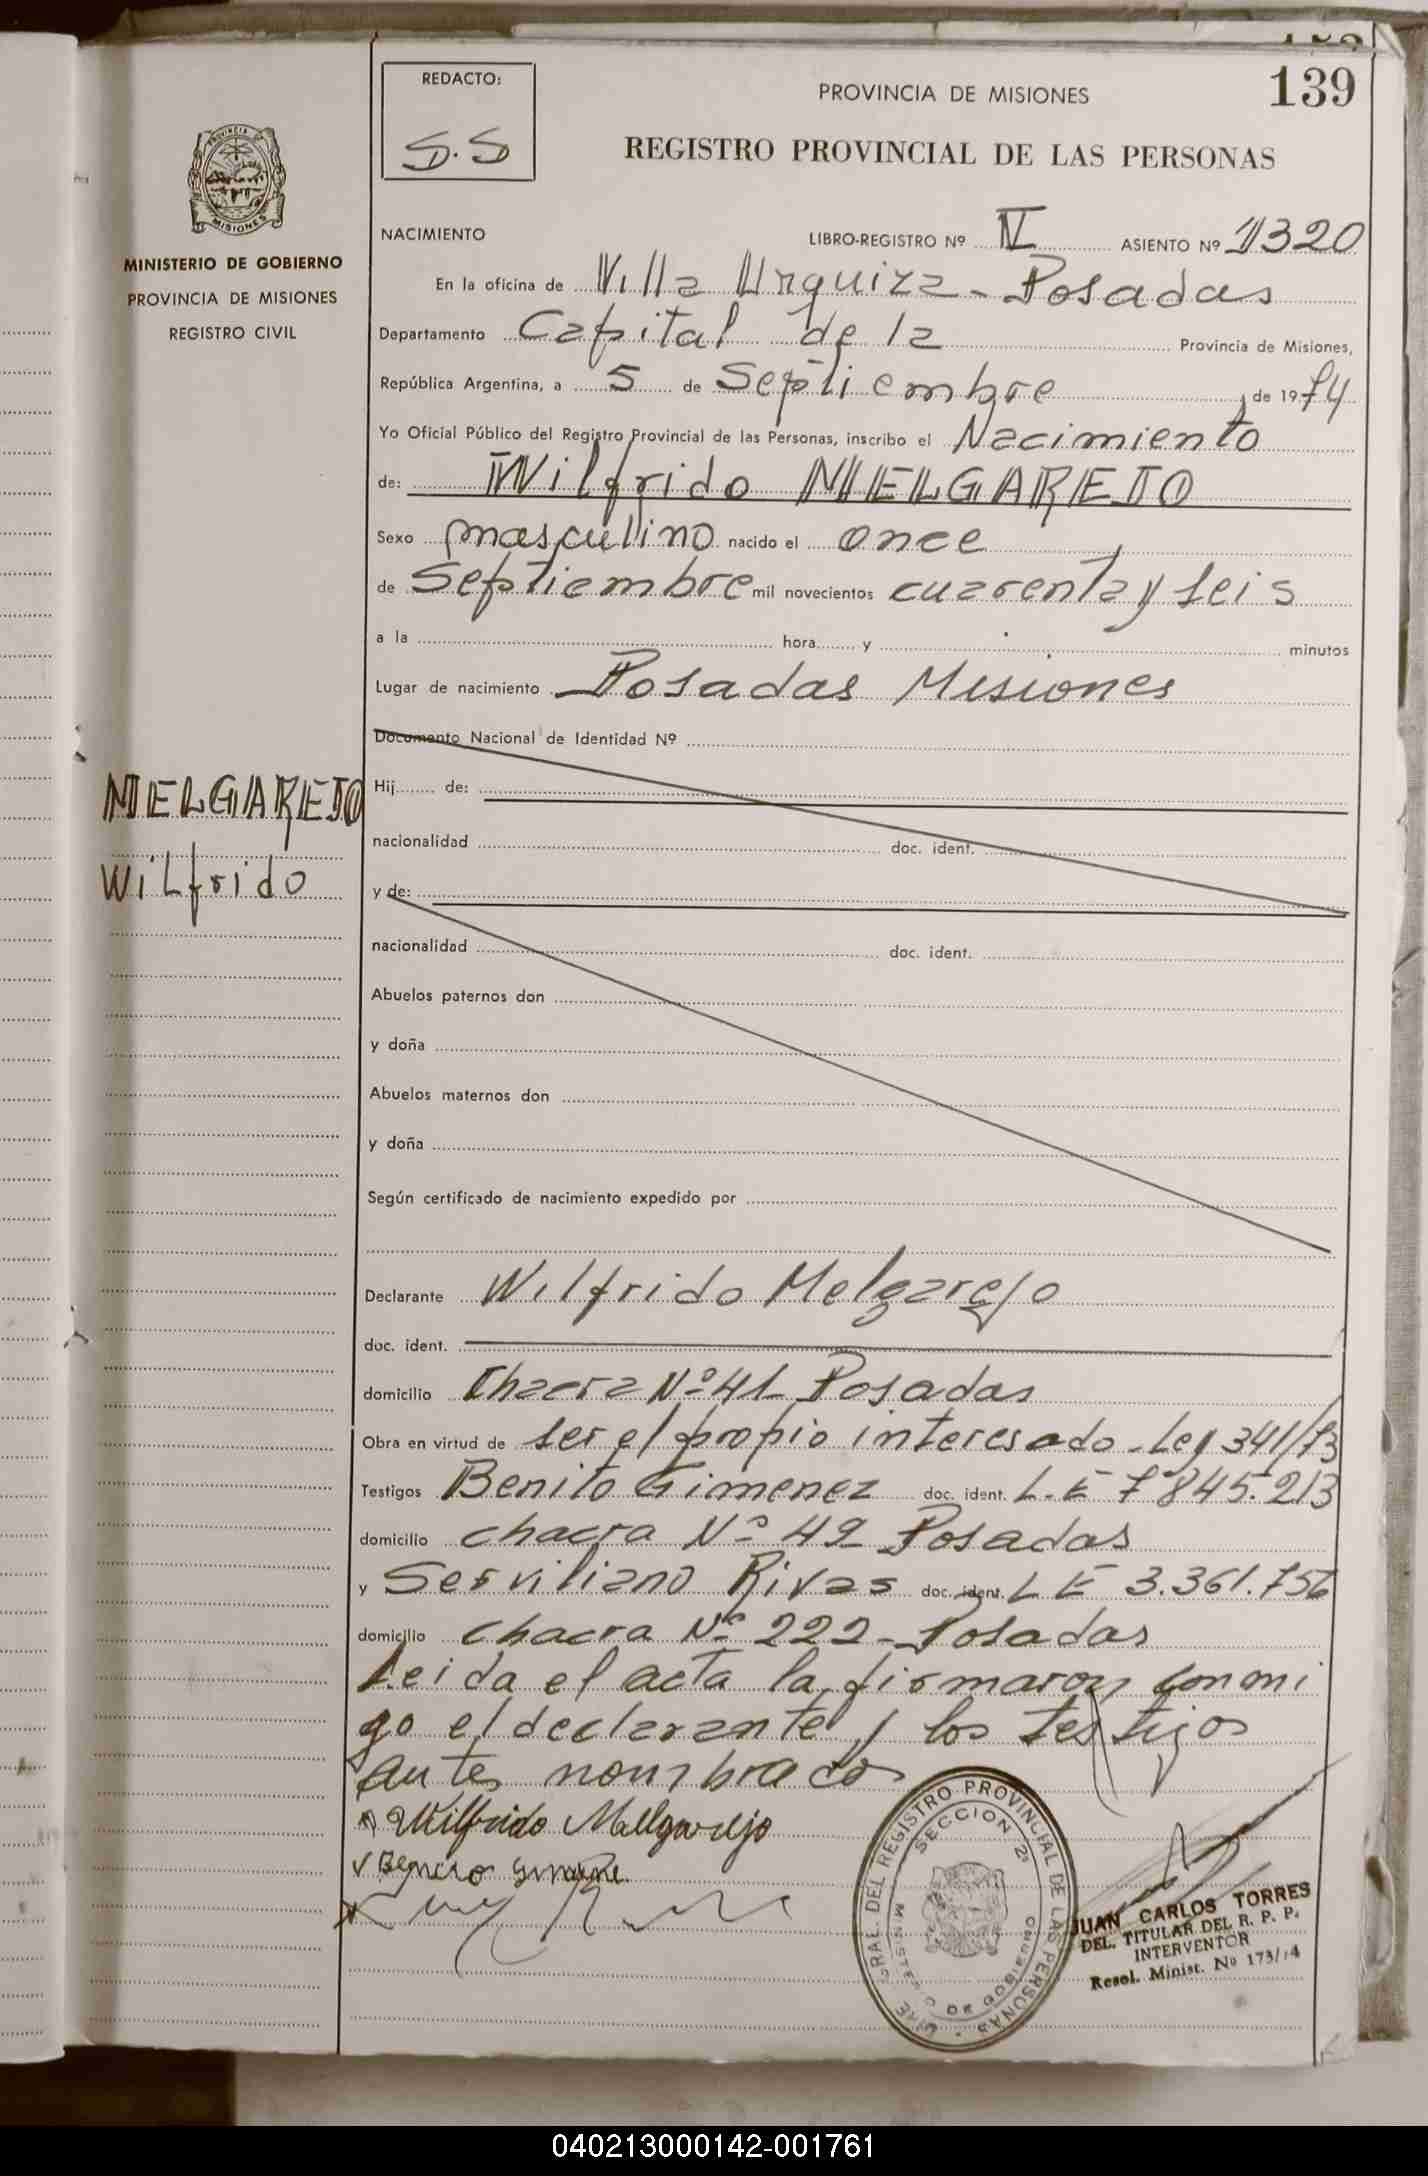 139
REDACTO:
S.S
PROVINCIA DE MISIONES
REGISTRO PROVINCIAL DE LAS PERSONAS
PROVINCIA DE
MISIONES
MINISTERIO DE GOBIERNO
PROVINCIA DE MISIONES
REGISTRO CIVIL
NACIMIENTO LIBRO-REGISTRO Nº IV ASIENTO Nº 1320
En la oficina de Villa Urquiza - Posadas
Departamento Capital de la Provincia de Misiones,
República Argentina, a 5 de Septiembre de 1974
Yo Oficial Público del Registro Provincial de las Personas, inscribo el Nacimiento
de: Wilfrido MELGAREJO
Sexo masculino nacido el once
de Septiembre mil novecientos cuarenta y seis
a la hora y minutos
Lugar de nacimiento Posadas Misiones
Documento Nacional de Identidad Nº
MELGAREJO
Wilfrido
Hij de:
nacionalidad doc. ident.
y de:
nacionalidad doc. ident.
Abuelos paternos don
y doña
Abuelos maternos don
y doña
Según certificado de nacimiento expedido por
Declarante Wilfrido Melgarejo
doc. ident.
domicilio Chacra Nº 41 Posadas
Obra en virtud de ser el propio interesado - Ley 341/73
Testigos Benito Gimenez doc. ident. L.E 7845.213
domicilio chacra Nº 49 Posadas
y Serviliano Rivas doc. ident. L E 3.361.756
domicilio chacra Nº 222 - Posadas
Leida el acta la firmaron conmi
go el declarante y los testigos
antes nombrados
Wilfrido Mellgarejo
GRAL. DEL REGISTRO PROVINCIAL DE LAS PERSONAS
SECCION 2ª
MINISTERIO DE GOBIERNO
JUAN CARLOS TORRES
DEL. TITULAR DEL R. P. P.
INTERVENTOR
Resol. Minist. Nº 173/74
040213000142-001761